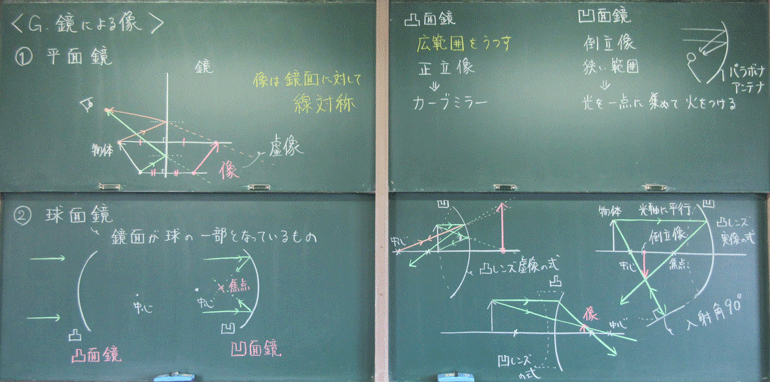 <G. 鏡による像>
① 平面鏡
鏡
像は鏡面に対して
線対称
物体
像
虚像
② 球面鏡
鏡面が球の一部となっているもの
中心
凸
凸面鏡
焦点
中心
凹
凹面鏡
凸面鏡
広範囲をうつす
正立像
⇓
カーブミラー
凹面鏡
倒立像
狭い範囲
⇓
光を一点に集めて火をつける
パラボナ
アンテナ
凹
中心
凸レンズ虚像の式
物体
光軸に平行
凹
倒立像
凸レンズ
実像の式
中心
焦点
入射角90°
凸
像
中心
凹レンズ
の式